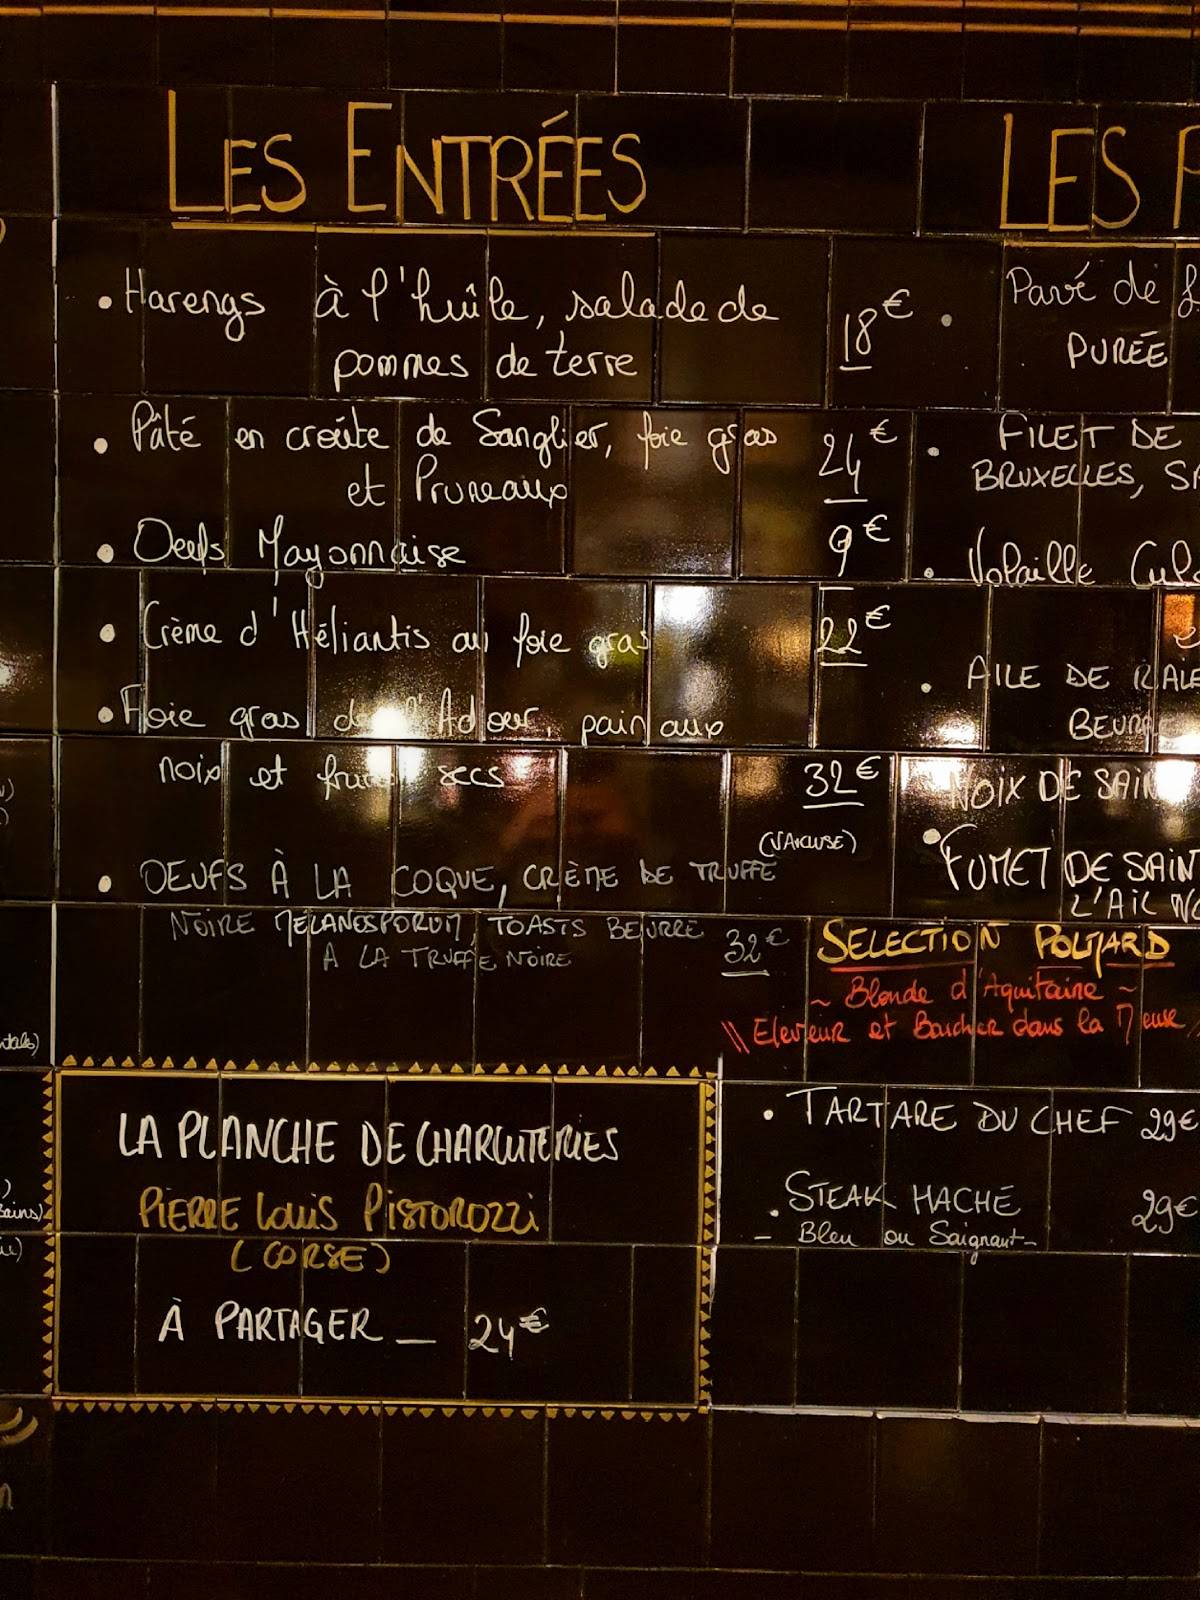 LES ENTRÉES
• Harengs à l'huîle, salade de
pommes de terre 18€
• Pâté en croûte de Sanglier, foie gras
et Pruneaux 24€
• Oeufs Mayonnaise 9€
• Crème d'Héliantis au foie gras 22€
• Foie gras de l'Adour, pain aux
noix et fruits secs 32€
(VAUCLUSE)
• OEUFS À LA COQUE, CRÈME DE TRUFFE
NOIRE MELANOSPORUM, TOASTS BEURRE
A LA TRUFFE NOIRE 32€
LA PLANCHE DE CHARCUTERIES
PIERRE Louis PISTOROZZI
(CORSE)
À PARTAGER _ 24€
LES P
• Pavé de
PURÉE
• FILET DE
BRUXELLES, SA
• Volaille Culo
• AILE DE RAIE
BEURRE
NOIX DE SAIN
• FUMET DE SAIN
L'AIL NO
SELECTION POLMARD
~ Blonde d'Aquitaine ~
\\ Eleveur et Boucher dans la Meuse
• TARTARE DU CHEF 29€
• STEAK HACHÉ 29€
- Bleu ou Saignant -
ntals)
Bains)